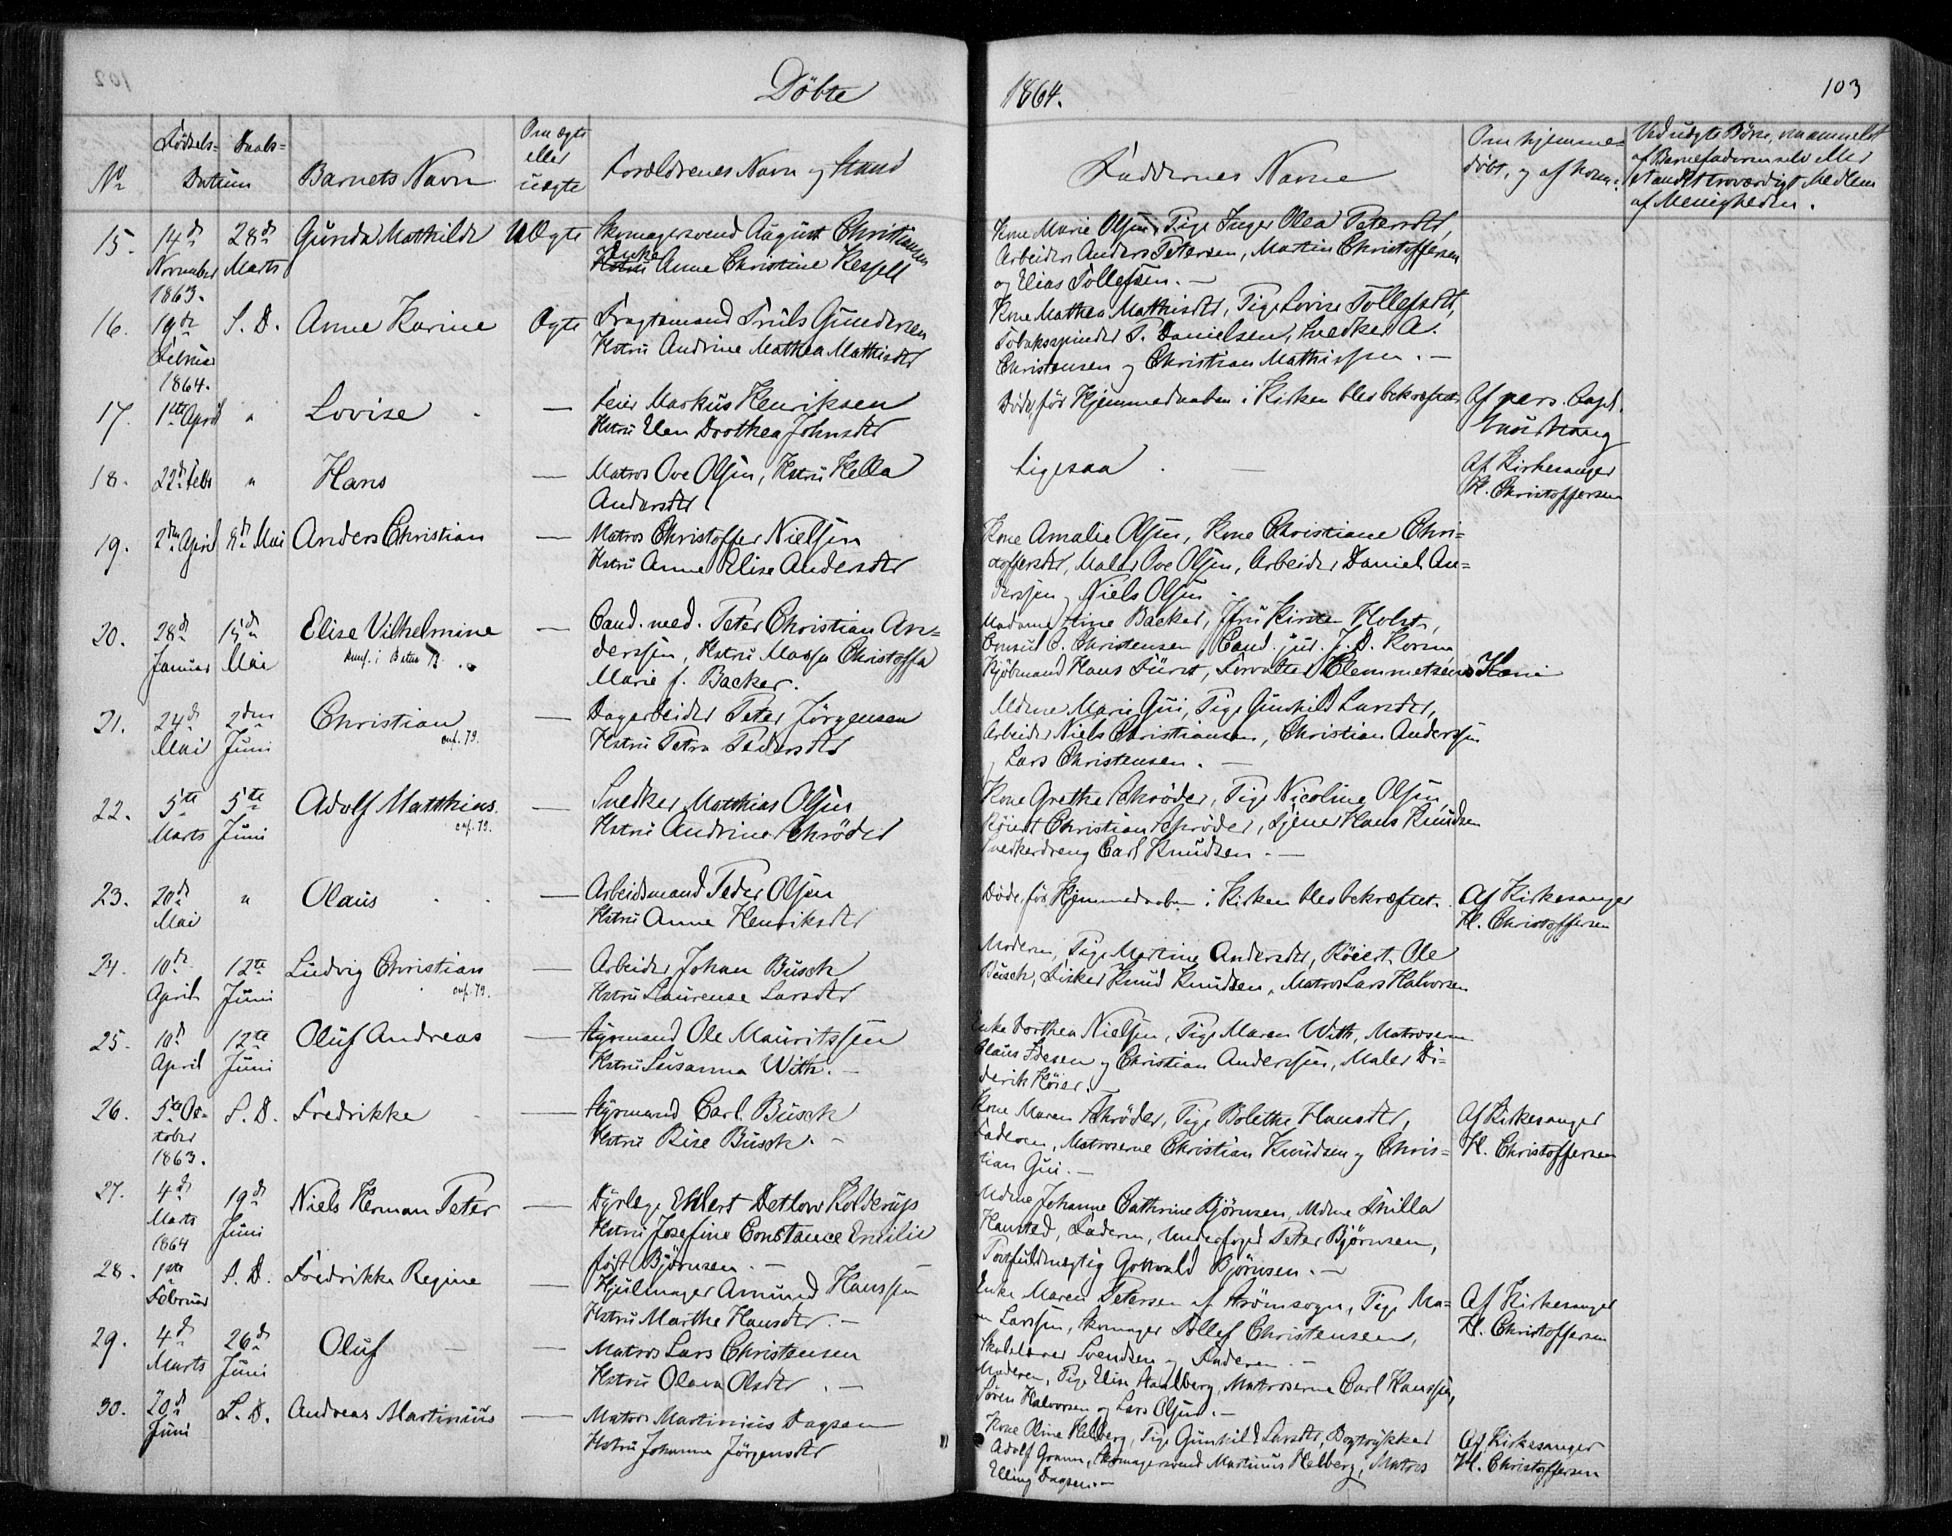 Döbte
1864.
103
No
Födsels-
Daabs-
Datum
Barnets Navn
Om ægte
eller
uægte
Forældrenes Navn og Stand
Faddernes Navne
Om hjemme-
döbt, og af hvem.
Ved uægte Börn, om anmeldt
af Barnefaderen selv eller
et andet troværdigt Medlem
af Menigheden.
15. 14de November 1863. 28de Marts Gunda Mathilde UÆgte
Skomagersvend August Christiansen
Enke Anne Christine Kessell
Kone Marie Olsen, Pige Inger Olea Petersdtr,
Arbeider Anders Petersen, Martin Christoffersen
og Elias Tollefsen. —
16. 19de Februar 1864. S. D. Anne Karine Ægte
Fragtemand Truls Gundersen
Hstru Andrine Mathea Mathisdtr
Kone Mathea Mathisdtr, Pige Lovise Tollefsdtr,
Tobaksspinder P. Danielsen, Snedker A.
Christensen og Christian Mathissen. —
17. 1ste April " Lovise —
Feier Markus Henriksen
Hstru Elen Dorothea Johnsdtr
Döde, för Hjemmedaaben i Kirken blev bekræftet
Af pers. Capl.
18. 22de Febr " Hans —
Matros Ove Olsen, Hstru Hella
Andersdtr
Ligesaa
Af Kirkesanger
H. Christoffersen
19. 2den April 8de Mai Anders Christian —
Matros Christoffer Nielsen
Hstru Anne Elise Andersdtr
Kone Amalie Olsen, Kone Christiane Chri-
stoffersdtr, Maler Ove Olsen, Arbeider Daniel An-
derssen og Niels Olsen
20. 28de Januar 15de Mai Elise Vilhelmine —
Cand. med. Peter Christian An-
derssen, Hstru Massa Christoffa
Marie f. Backer.
Madame Stine Backer, Jfru Kirsten Holst,
Consul C. Christensen, Cand. jur. J. D.
Kjöbmand Hans Fürst, Forvalter Clemmetsen
21. 24de Mai 2den Juni Christian —
conf. 79.
Dagarbeider Peter Jörgensen
Hstru Petra Pedersdtr
Mdme Marie Gui, Pige Gunhild Larsdtr,
Arbeider Niels Christiansen, Christian Anderssen
og Lars Christensen. —
22. 5te Marts 5te Juni Adolf Matthias. —
conf. 79.
Snedker Matthias Olsen
Hstru Andrine Schröder
Kone Grethe Schröder, Pige Nicoline Olsen,
Röiert Christian Schröder, Tjener Hans Knudsen
Snedkerdreng Carl Knudsen. —
23. 20de Mai " Olaus —
Arbeidsmand Peder Olsen
Hstru Anne Henriksdtr
Döde, för Hjemmedaaben i Kirken blev bekræftet.
Af Kirkesanger
H. Christoffersen
24. 10de April 12te Juni Ludvig Christian —
conf. 79.
Arbeider Johan Busch
Hstru Laurense Larsdtr
Moderen, Pige Martine Andersdtr, Röiert Ole
Busch, Fisker Knud Knudsen, Matros Lars Halvorsen
25. 10de April 12te Juni Oluf Andreas —
Styrmand Ole Mauritssen
Hstru Susanna With. —
Enke Dorthea Nielsen, Pige Maren With, Matroserne
Claus Ibesen og Christian Anderssen, Maler Di-
derik Höier.
26. 5te October 1863. S. D. Fredrikke —
Styrmand Carl Busch
Hstru Rise Busch. —
Kone Maren Schröder, Pige Bolethe Hansdtr,
Faderen, Matroserne Christian Knudsen og Chris-
tian Gui. —
Af Kirkesanger
H. Christoffersen
27. 4de Marts 1864 19de Juni Niels Herman Peter —
Dyrlæge Ehlert Detlow Kolderup
Hstru Josefine Constance Emilie
född Björnsen. —
Mdme Johanne Cathrine Björnsen, Mdme Thilla
Hansted, Faderen, Underfoged Peter Björnsen,
Postfuldmægtig Gottwald Björnsen. —
28. 1ste Februar S. D. Fredrikke Regine —
Hjulmager Amund Hanssen
Hstru Marthe Hansdtr. —
Enke Maren Petersen af Strömsogn, Pige Ma-
ren Larssen, Skomager Tollef Christensen,
Skolelærer Svendsen og Faderen. —
Af Kirkesanger
H. Christoffersen
29. 4de Marts 26de Juni Oluf —
Matros Lars Christensen
Hstru Olava Olsdtr. —
Moderen, Pige Elise Stahlberg, Matroserne Carl Hanssen,
Sören Halvorsen og Lars Olsen. —
30. 20de Juni S. D. Andreas Martinius —
Matros Martinius Dagsen
Hstru Johanne Jörgensdtr
Kone Oline Helberg, Pige Gunhild Larsdtr, Bogtrykker
Adolf Gramm, Skomagersvend Martinius Helberg, Matros
Elling Dagsen. —
Af Kirkesanger
H. Christoffersen